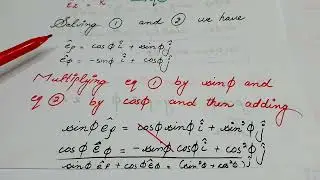 Solving ① and ② we have
êρ = cosφ î + sinφ ĵ
êφ = -sinφ î + cosφ ĵ
Multiplying eq ① by sinφ and
eq ② by cosφ and then adding
sinφ êρ = cosφ sinφ î + sin²φ ĵ
cosφ êφ = -sinφ cosφ î + cos²φ ĵ
sinφ êρ + cosφ êφ = (sin²φ + cos²φ) ĵ